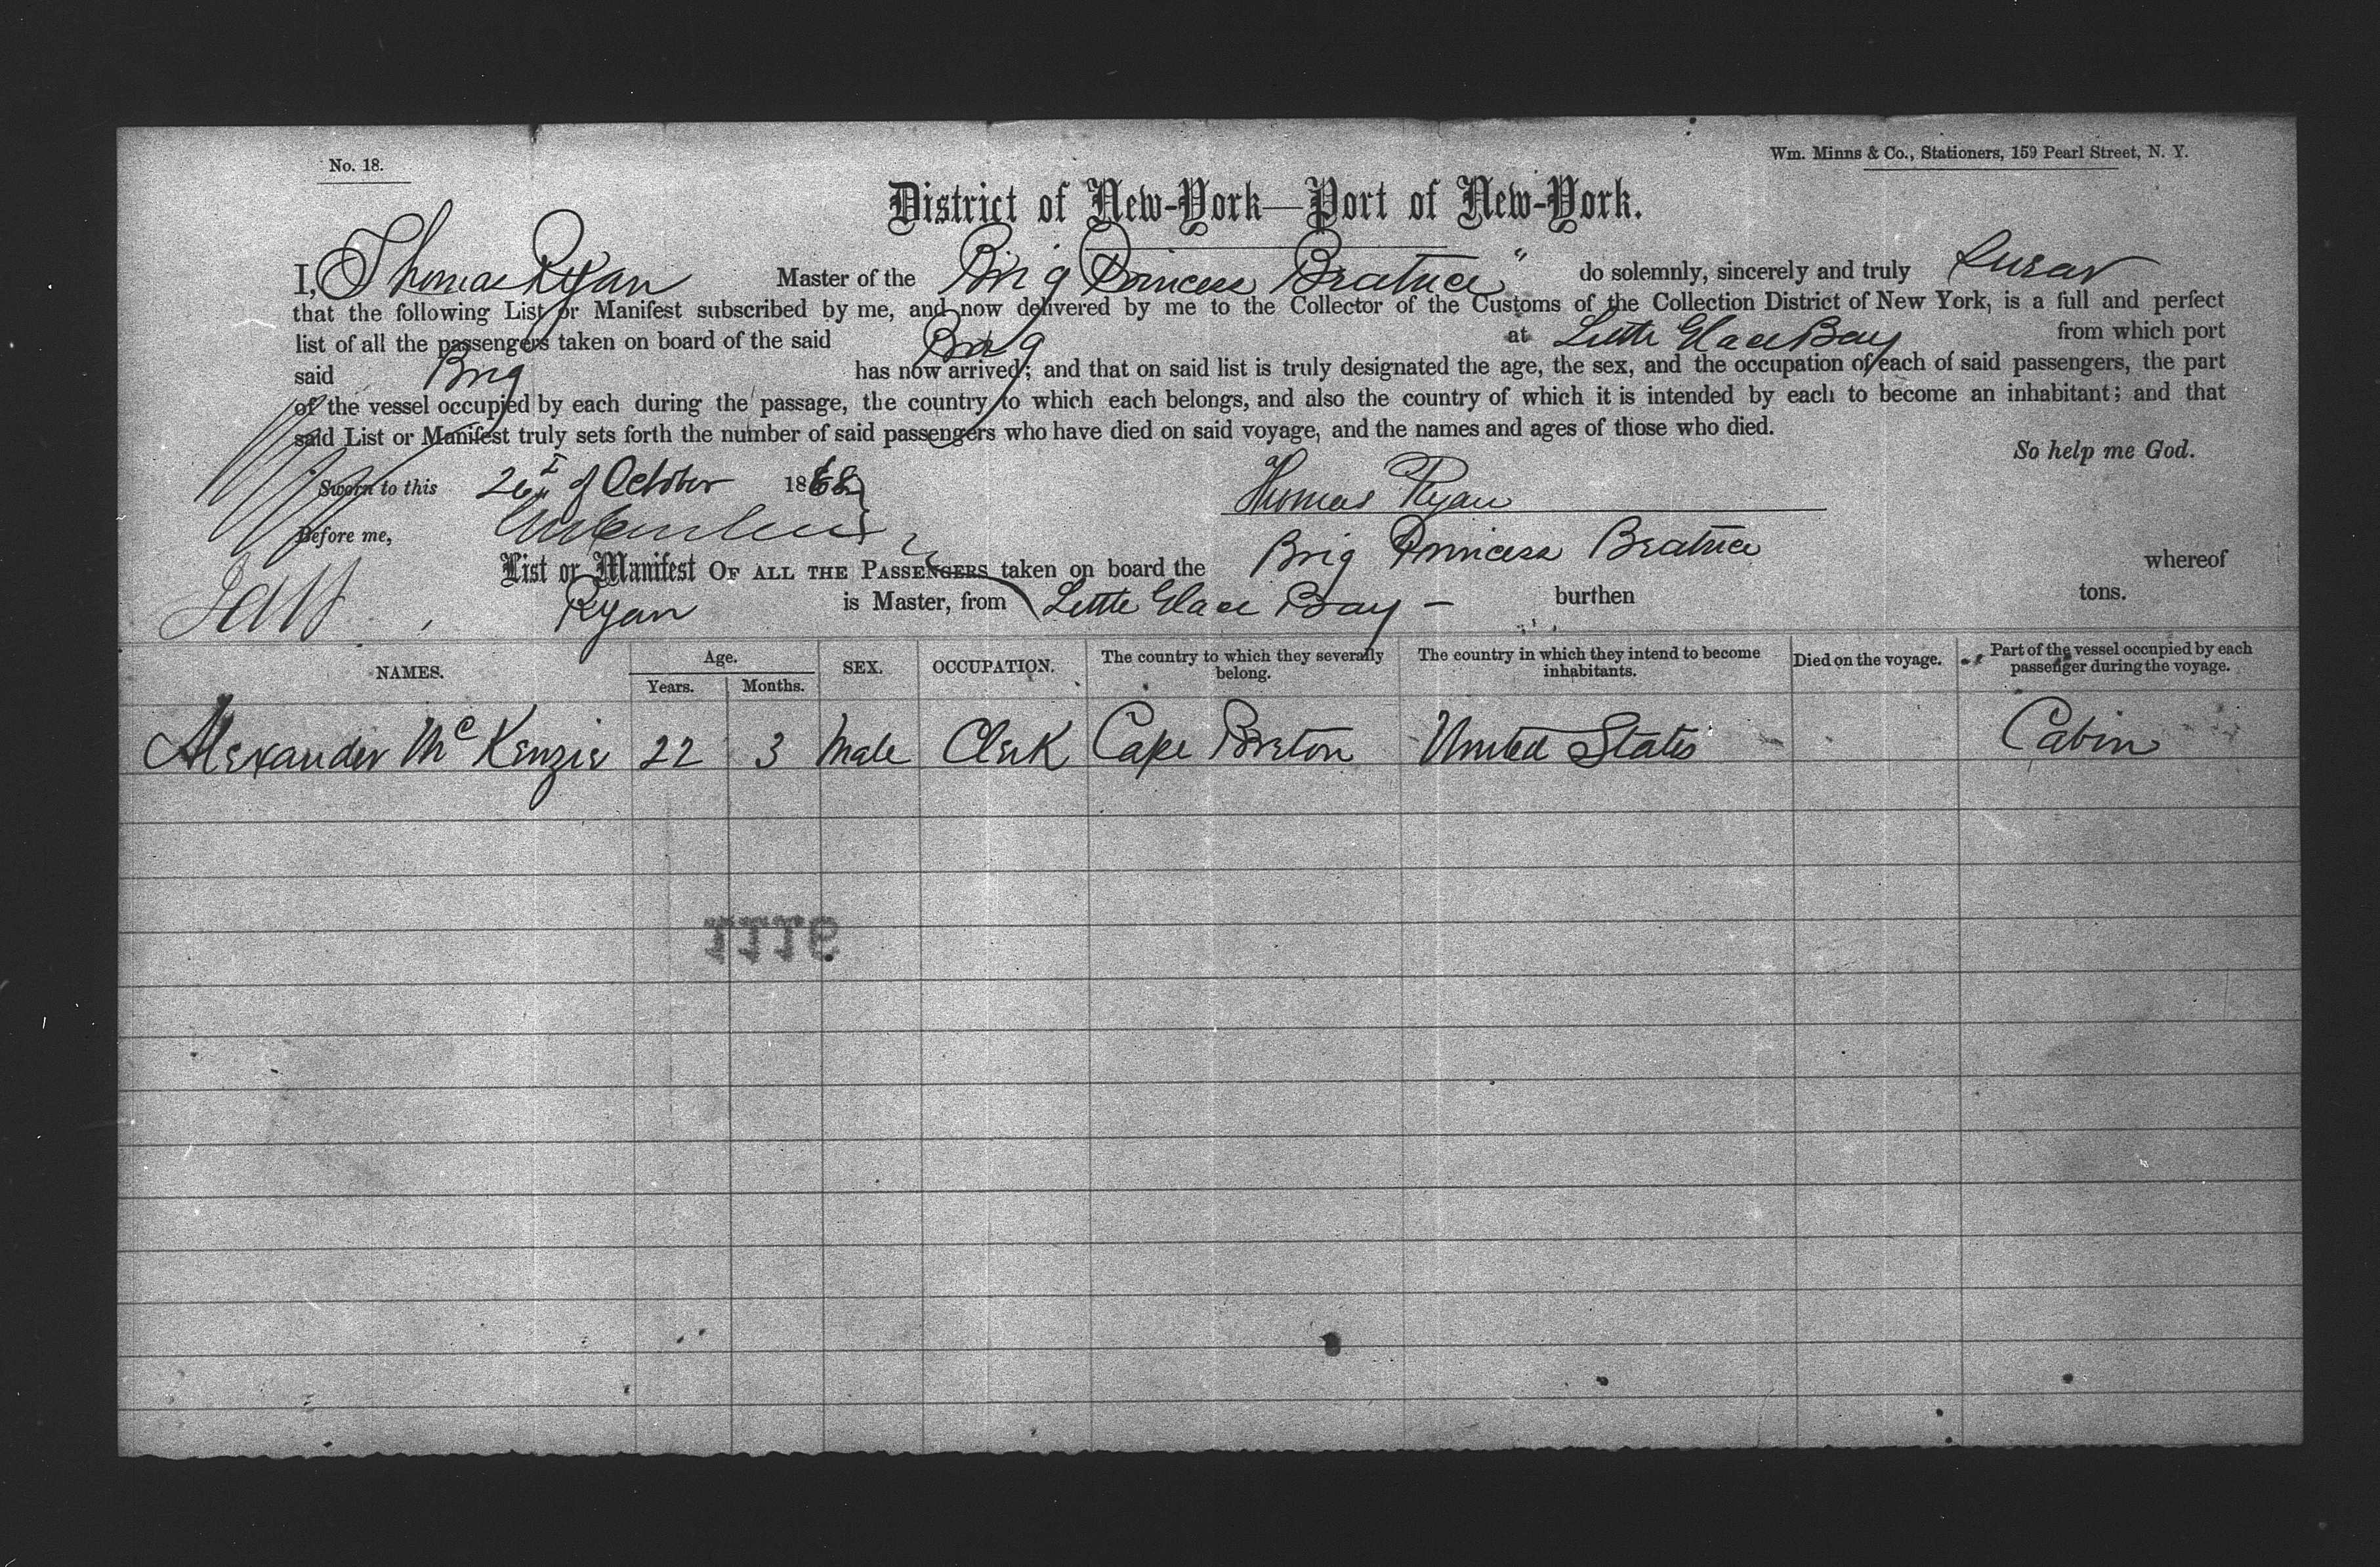 No. 18.
Wm. Minns & Co., Stationers, 159 Pearl Street, N. Y.
District of New-York—Port of New-York.
I, Thomas Ryan Master of the Brig Princess Beatrice" do solemnly, sincerely and truly swear
that the following List or Manifest subscribed by me, and now delivered by me to the Collector of the Customs of the Collection District of New York, is a full and perfect
list of all the passengers taken on board of the said Brig at Little Glace Bay from which port
said Brig has now arrived; and that on said list is truly designated the age, the sex, and the occupation of each of said passengers, the part
of the vessel occupied by each during the passage, the country to which each belongs, and also the country of which it is intended by each to become an inhabitant; and that
said List or Manifest truly sets forth the number of said passengers who have died on said voyage, and the names and ages of those who died.
So help me God.
Sworn to this 26 of October 1868
Thomas Ryan
Before me,
List or Manifest OF ALL THE PASSENGERS taken on board the Brig Princess Beatrice whereof
Ryan is Master, from Little Glace Bay — burthen tons.
NAMES. Age. Years. Months. SEX. OCCUPATION. The country to which they severally belong. The country in which they intend to become inhabitants. Died on the voyage. Part of the vessel occupied by each passenger during the voyage.
Alexander McKenzie 22 3 Male Clerk Cape Breton United States Cabin